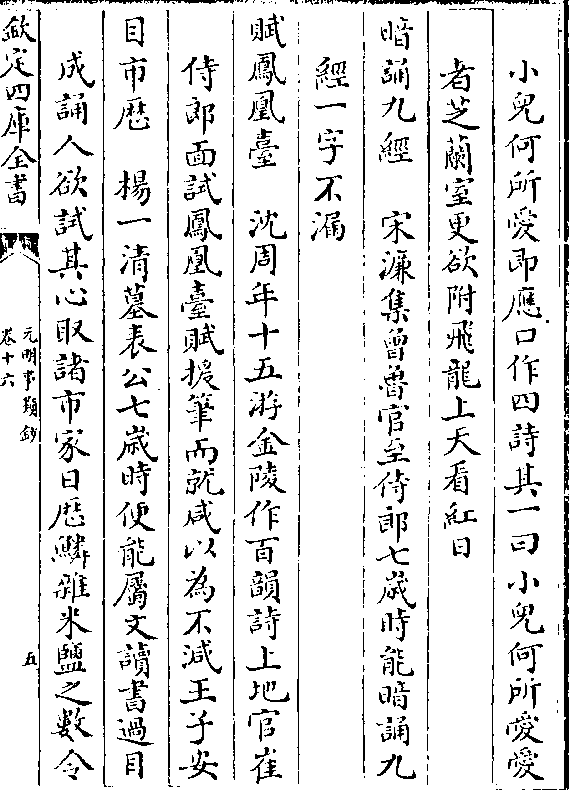 小兒何所愛即應口作四詩其一曰小兒何所愛愛
者芝蘭室更欲附飛龍上天看紅日
暗誦九經　宋濂集曾魯官至侍郎七歲時能暗誦九
經一字不漏
賦鳳凰臺　沈周年十五游金陵作百韻詩上地官崔
侍郎面試鳳凰臺賦援筆而就咸以為不減王子安
目市歷　楊一清墓表公七歲時便能屬文讀書過目
成誦人欲試其心取諸市家日歷鱗雜米鹽之數令
欽定四庫全書
元明事類鈔
卷十六
五